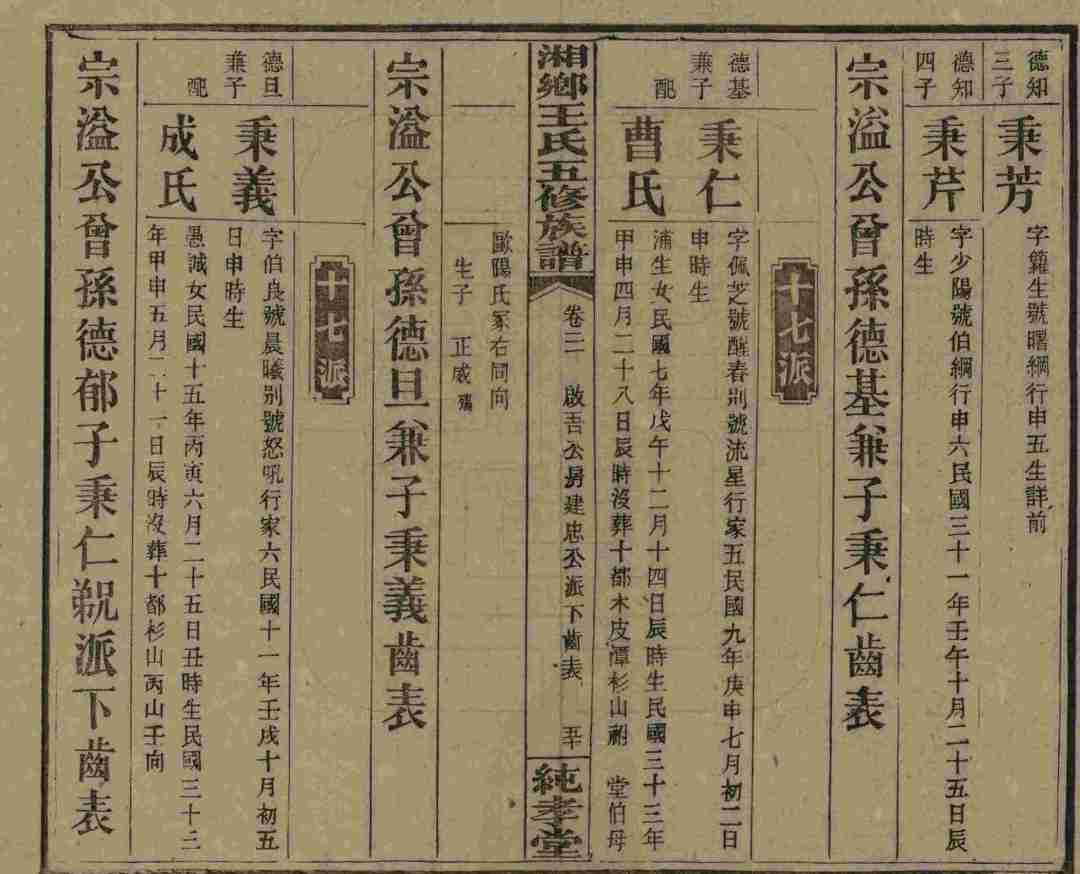 德知
三子
秉芳
字籮生號曙綱行申五生詳前
德知
四子
秉芹
字少陽號伯綱行申六民國三十一年壬午十月二十五日辰
時生
宗溢公曾孫德基兼子秉仁齒表
十七派
德基
兼子
秉仁
字佩芝號醒春別號流星行家五民國九年庚申七月初二日
申時生
配
曹氏
浦生女民國七年戊午十二月十四日辰時生民國三十三年
甲申四月二十八日辰時沒葬十都木皮潭杉山 堂伯母
湘鄉王氏五修族譜
卷三 啟吾公房建忠公派下齒表
純孝堂
歐陽氏冢右同向
生子 正威 殤
宗溢公曾孫德旦兼子秉義齒表
十七派
德旦
兼子
秉義
字伯良號晨曦別號怒吼行家六民國十一年壬戌十月初五
日申時生
配
成氏
愚誠女民國十五年丙寅六月二十五日丑時生民國三十三
年甲申五月二十一日辰時沒葬十都杉山丙山壬向
宗溢公曾孫德郁子秉仁祧派下齒表